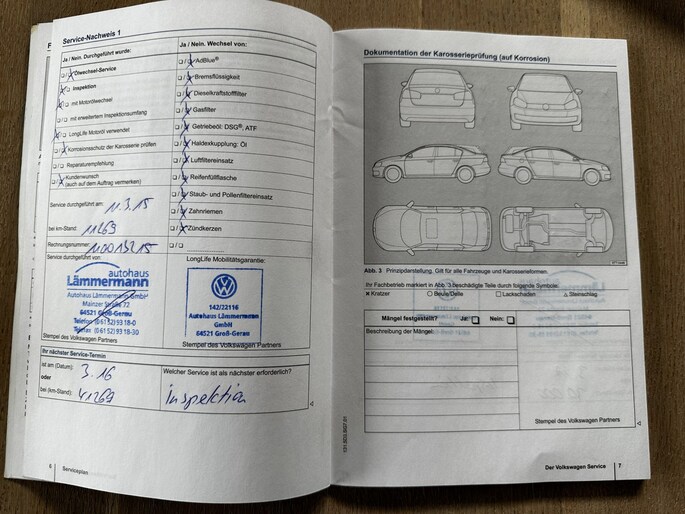 Service-Nachweis 1
Ja / Nein. Durchgeführt wurde:
❏/❏ Ölwechsel-Service
❏/❏ Inspektion
❏/❏ mit Motorölwechsel
❏/❏ mit erweitertem Inspektionsumfang
❏/❏ LongLife Motoröl verwendet
❏/❏ Korrosionsschutz der Karosserie prüfen
❏/❏ Reparaturempfehlung
❏/❏ Kundenwunsch
(auch auf dem Auftrag vermerken)
Service durchgeführt am: 11.3.15
bei km-Stand: 11269
Rechnungsnummer:
Service durchgeführt von:
autohaus
Lämmermann
Autohaus Lämmermann GmbH
Mainzer Straße 72
64521 Groß-Gerau
Telefon (0 61 52) 93 18-0
Telefax (0 61 52) 93 18-30
Stempel des Volkswagen Partners
Ja / Nein. Wechsel von:
❏/❏ AdBlue®
❏/❏ Bremsflüssigkeit
❏/❏ Dieselkraftstofffilter
❏/❏ Gasfilter
❏/❏ Getriebeöl: DSG®, ATF
❏/❏ Haldexkupplung: Öl
❏/❏ Luftfiltereinsatz
❏/❏ Reifenfüllflasche
❏/❏ Staub- und Pollenfiltereinsatz
❏/❏ Zahnriemen
❏/❏ Zündkerzen
❏/❏
LongLife Mobilitätsgarantie:
142/22116
Autohaus Lämmermann
GmbH
64521 Groß-Gerau
Stempel des Volkswagen Partners
Ihr nächster Service-Termin
ist am (Datum): 3.16
oder
bei (km-Stand): 41269
Welcher Service ist als nächster erforderlich?
Inspektion
6 Serviceplan
Dokumentation der Karosserieprüfung (auf Korrosion)
Abb. 3 Prinzipdarstellung. Gilt für alle Fahrzeuge und Karosserieformen.
Ihr Fachbetrieb markiert in Abb. 3 beschädigte Teile durch folgende Symbole:
× Kratzer ○ Beule/Delle □ Lackschaden △ Steinschlag
Mängel festgestellt? Ja: ❏ Nein: ❏
Beschreibung der Mängel:
Stempel des Volkswagen Partners
Der Volkswagen Service 7